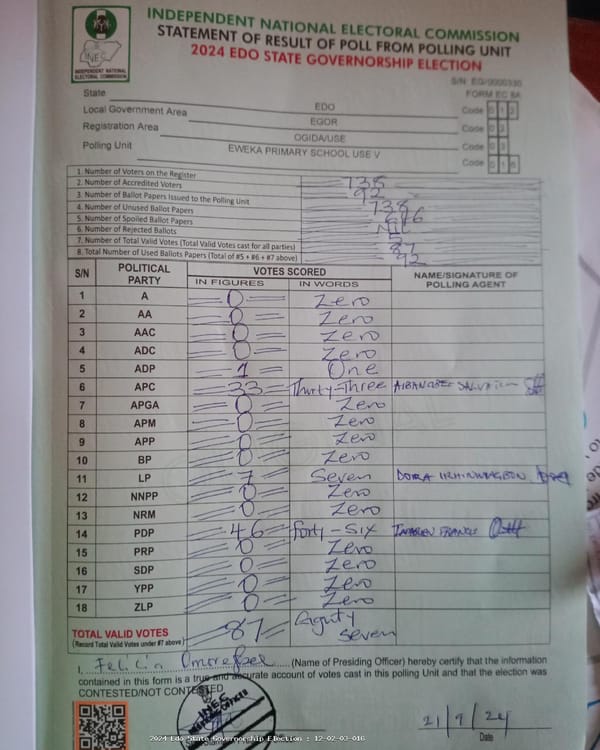 INDEPENDENT NATIONAL ELECTORAL COMMISSION
STATEMENT OF RESULT OF POLL FROM POLLING UNIT
2024 EDO STATE GOVERNORSHIP ELECTION
INEC
INDEPENDENT NATIONAL
ELECTORAL COMMISSION
S/N: EG/0000330
FORM EC 8A
State EDO Code 0 1 2
Local Government Area EGOR Code 0 2
Registration Area OGIDA/USE Code 0 3
Polling Unit EWEKA PRIMARY SCHOOL USE V Code 0 1 6
1. Number of Voters on the Register 738
2. Number of Accredited Voters 92
3. Number of Ballot Papers Issued to the Polling Unit 738
4. Number of Unused Ballot Papers 646
5. Number of Spoiled Ballot Papers NIL
6. Number of Rejected Ballots 5
7. Number of Total Valid Votes (Total Valid Votes cast for all parties) 87
8. Total Number of Used Ballots Papers (Total of #5 + #6 + #7 above) 92
S/N POLITICAL PARTY VOTES SCORED NAME/SIGNATURE OF POLLING AGENT
IN FIGURES IN WORDS
1 A 0 Zero
2 AA 0 Zero
3 AAC 0 Zero
4 ADC 0 Zero
5 ADP 1 One
6 APC 33 Thirty-Three
7 APGA 0 Zero
8 APM 0 Zero
9 APP 0 Zero
10 BP 0 Zero
11 LP 7 Seven DORA
12 NNPP 0 Zero
13 NRM 0 Zero
14 PDP 46 forty-six FRANCIS
15 PRP 0 Zero
16 SDP 0 Zero
17 YPP 0 Zero
18 ZLP 0 Zero
TOTAL VALID VOTES 87 Eighty
(Record Total Valid Votes under #7 above) Seven
I, Felicia (Name of Presiding Officer) hereby certify that the information
contained in this form is a true and accurate account of votes cast in this polling Unit and that the election was
CONTESTED/NOT CONTESTED
21/9/24
Date
2024 Edo State Governorship Election : 12-02-03-016